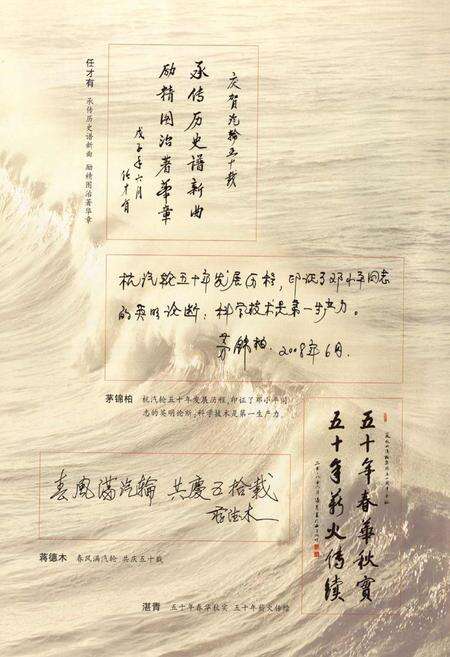 任才有 承传历史谱新曲 励精图治著华章
庆贺汽轮五十载
承传历史谱新曲
励精图治著華章
戊子年六月
任才有
杭汽轮五十年发展历程，印证了邓小平同志
的英明论断：科学技术是第一生产力。
茅锦柏 2008年6月.
茅锦柏 杭汽轮五十年发展历程,印证了邓小平同
志的英明论断:科学技术是第一生产力。
五十年春華秋實
五十年薪火传續
春風满汽輪 共慶五拾载
蒋德木
蒋德木 春风满汽轮 共庆五十载
湛青 五十年春华秋实 五十年薪火传续